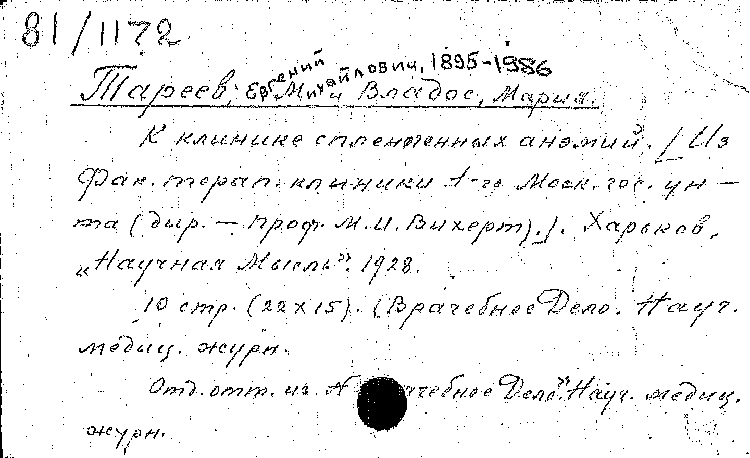 81/1172
Тареев, Евгений Михайлович, 1895-1986
М. и Владос, Мария.
К клинике спленогенных анэмий. [Из
Фак. терап. клиники 1-го Моск. гос. ун-
та (дир. — проф. М. И. Вихерт).]. Харьков,
„Научная Мысль". 1928.
10 стр. (22х15). (Врачебное Дело. Науч.
медиц. журн.
Отд. отт. из. ачебное Дело". Науч. медиц.
журн.